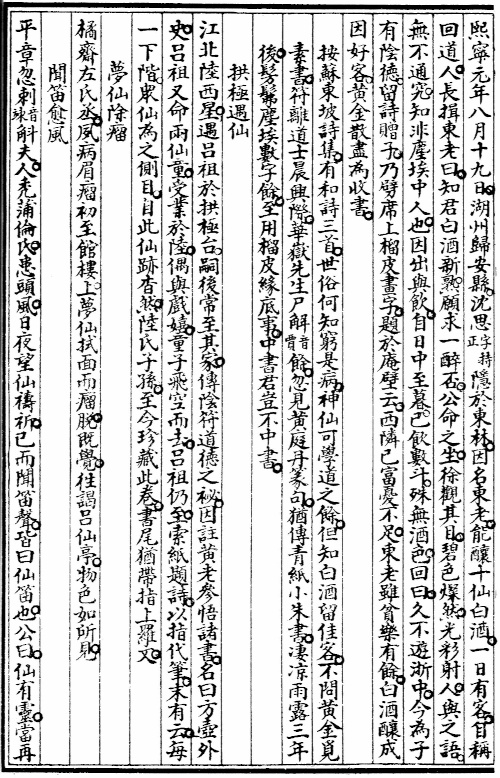 熙寧元年八月十九日湖州歸安縣沈思字持正隱於東林因名東老能釀十仙白酒一日有客自稱
回道人長揖東老曰知君白酒新熟願求一醉否公命之坐徐觀其目碧色燦然光彩射人與之語
無不通究知非塵埃中人也因出與飲自日中至暮已飲數斗殊無酒色回曰久不遊浙中今為子
有陰德留詩贈子乃劈席上榴皮畫字題於庵壁云西隣已富憂不足東老雖貧樂有餘白酒釀成
因好客黃金散盡為收書
按蘇東坡詩集有和詩三首世俗何知窮是病神仙可學道之餘但知白酒留佳客不問黃金覓
素書符離道士晨興際華嶽先生尸解音賈餘忽見黃庭丹篆句猶傳青紙小朱書凄凉雨露三年
後髣髴塵埃數字餘至用榴皮緣底事中書君豈不中書
拱極遇仙
江北陸西星遇呂祖於拱極台嗣後常至其家傳陰符道德之秘因註黃老參悟諸書名曰方壺外
史呂祖又命兩仙童受業於陸偶與戲嬉童子飛空而去呂祖仍至索紙題詩以指代筆末有云每
一下階眾仙為之側目自此仙跡杳然陸氏子孫至今珍藏此卷書尾猶帶指上羅文
夢仙除瘤
橘齋左氏丞夙病眉瘤初至館樓上夢仙拭面而瘤脫既覺往謁呂仙亭物色如所見
聞笛愈風
平章忽剌音辣斛夫人禿蒲倫氏患頭風日夜望仙禱祈已而聞笛聲皆曰仙笛也公曰仙有靈當再